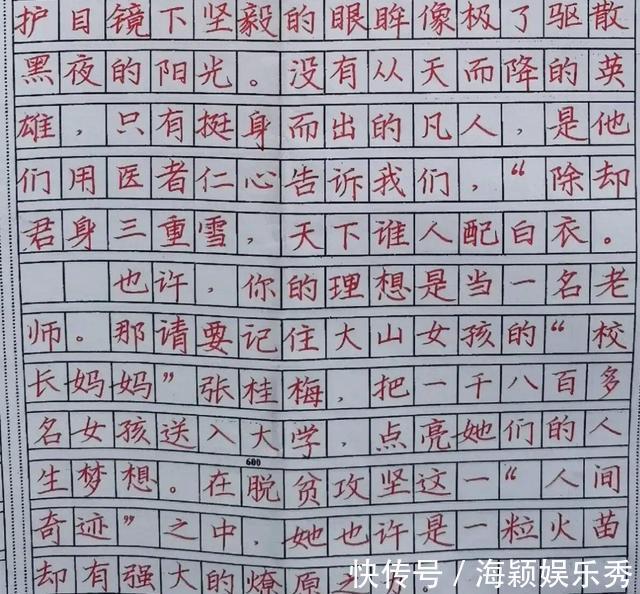 护目镜下坚毅的眼眸像极了驱散
黑夜的阳光。没有从天而降的英
雄，只有挺身而出的凡人，是他
们用医者仁心告诉我们，“除却
君身三重雪，天下谁人配白衣。
也许，你的理想是当一名老
师。那请要记住大山女孩的“校
长妈妈”张桂梅，把一千八百多
名女孩送入大学，点亮她们的人
生梦想。在脱贫攻坚这一“人间
600
奇迹”之中，她也许是一粒火苗
却有强大的燎原之
快传号／海颖娱乐秀